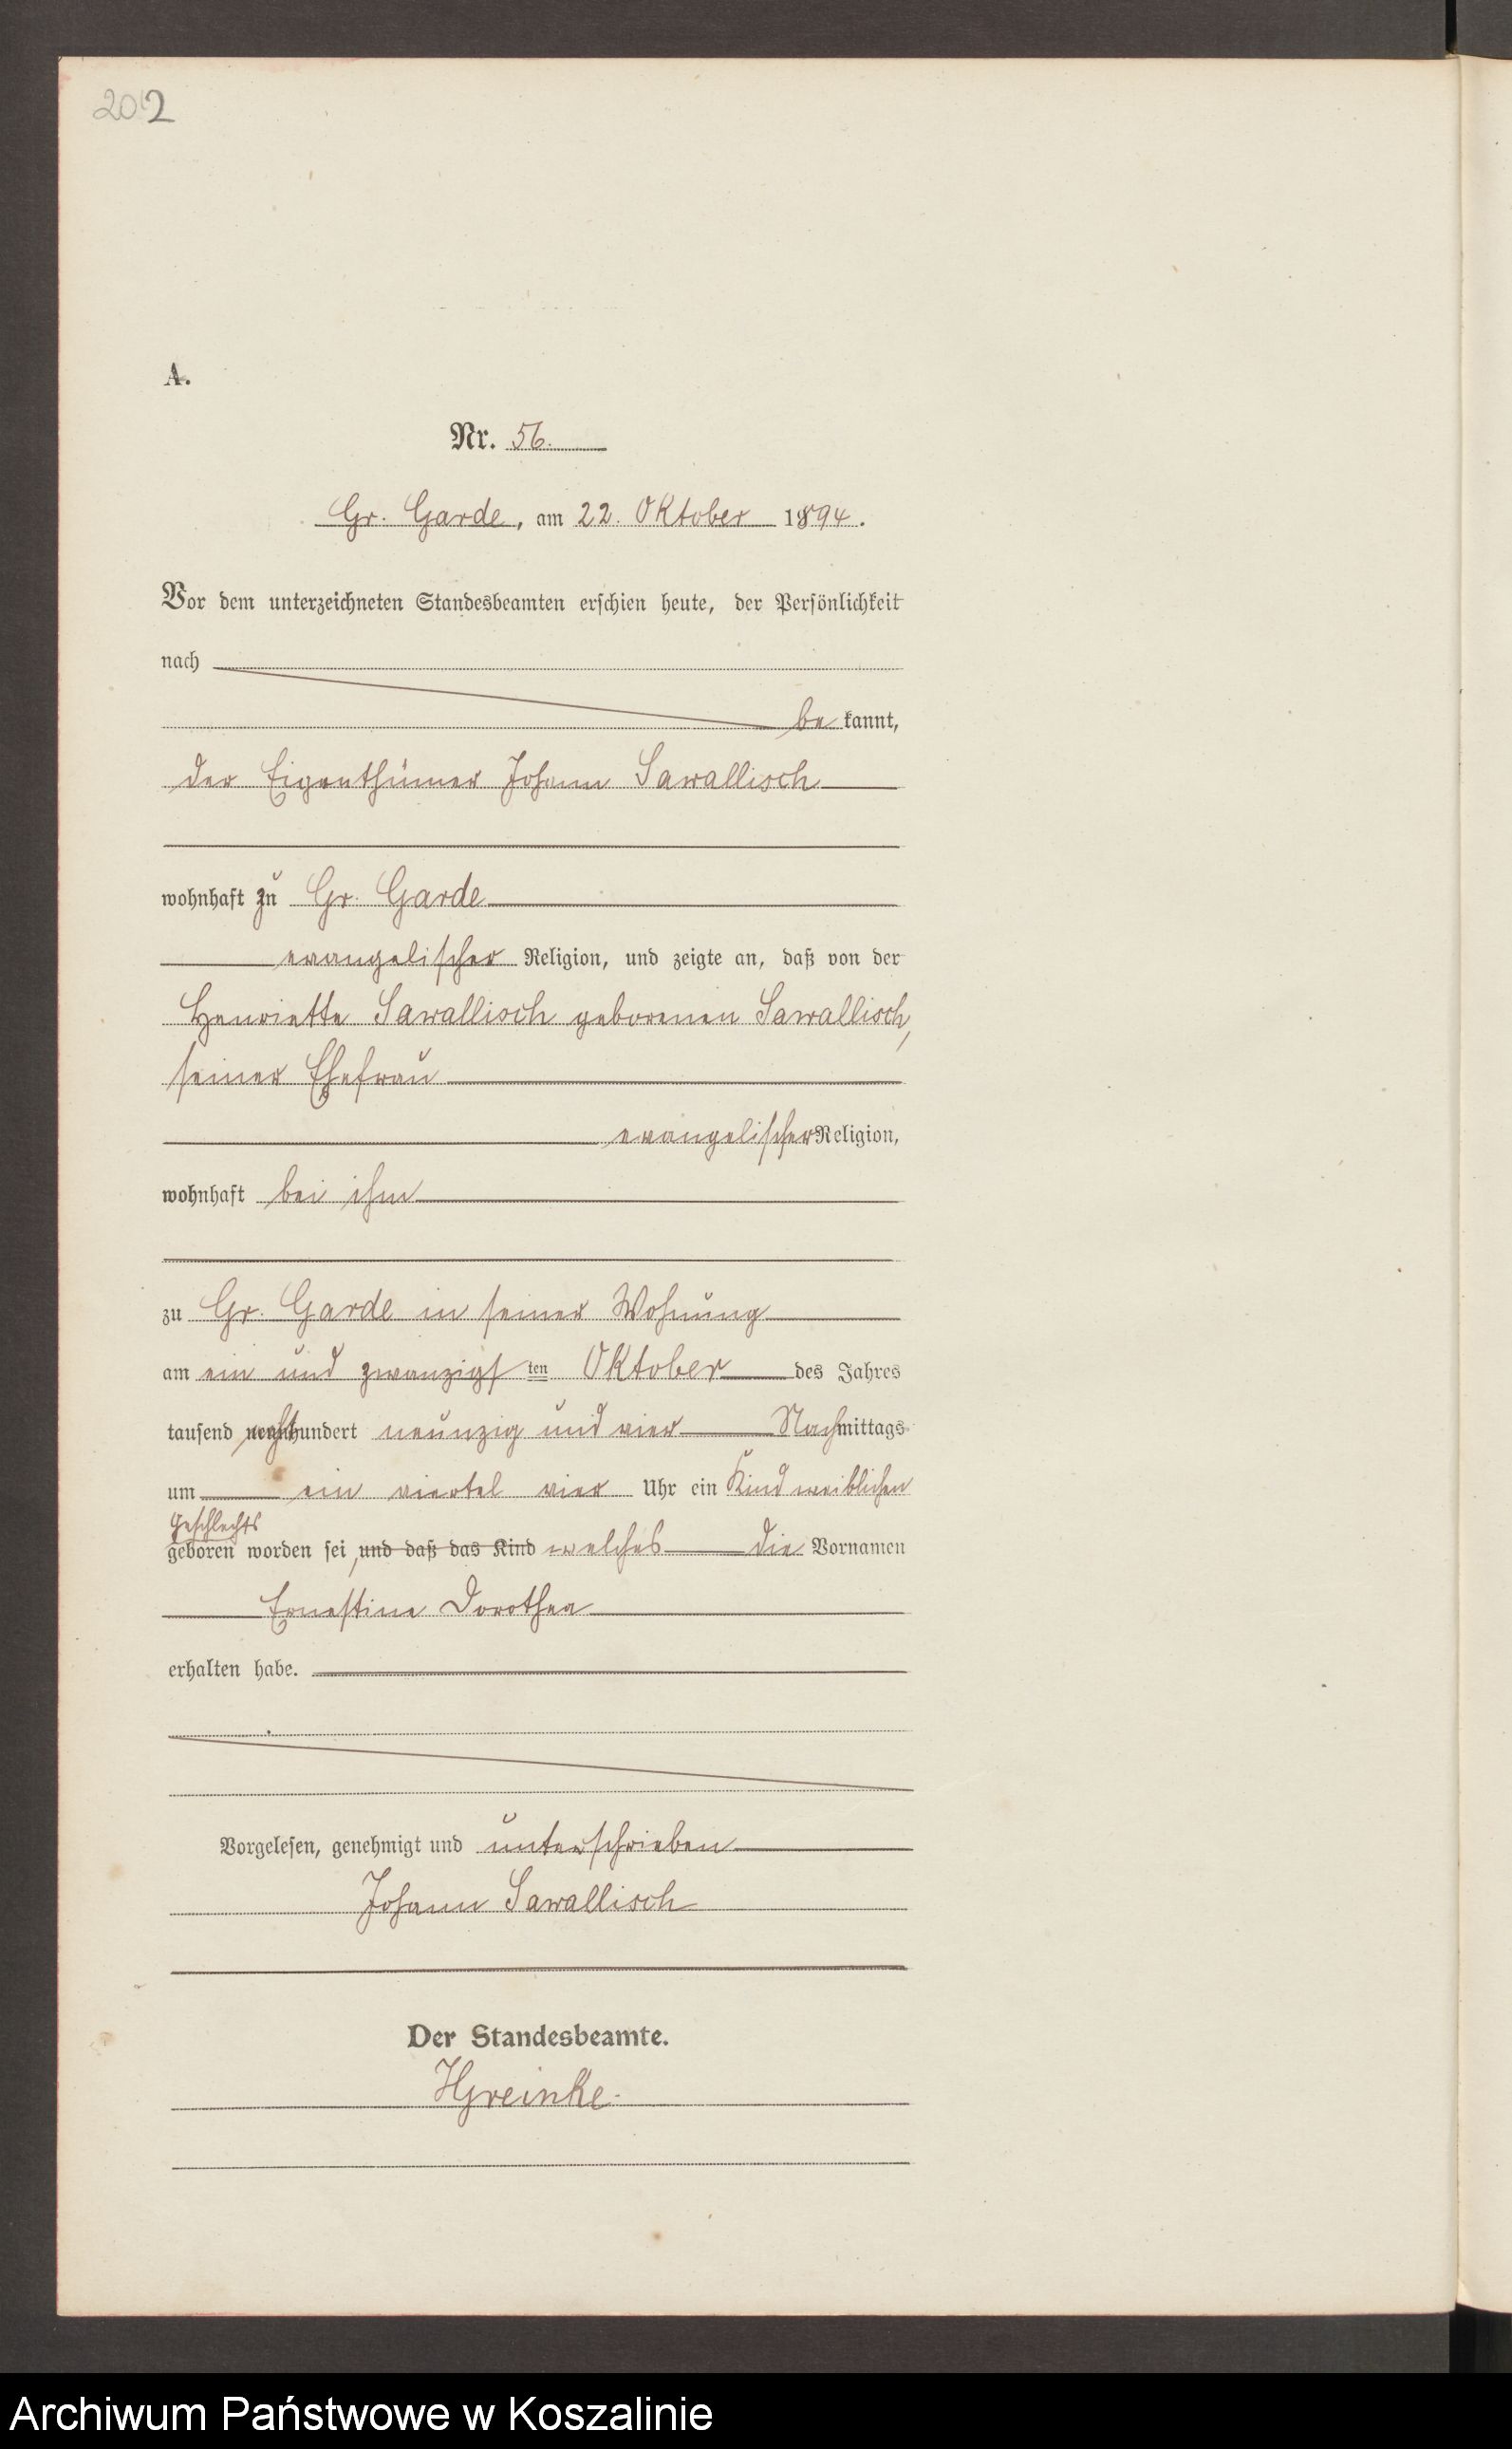 2012
A.
Nr. 56.
Gr. Garde, am 22. Oktober 1894.
Vor dem unterzeichneten Standesbeamten erschien heute, der Persönlichkeit
nach
be kannt,
der Eigenthümer Johann Sawallisch
wohnhaft zu Gr. Garde
evangelischer Religion, und zeigte an, daß von der
Henriette Sawallisch geborenen Sawallisch,
seiner Ehefrau
evangelischer Religion,
wohnhaft bei ihm
zu Gr. Garde in seiner Wohnung
am ein und zwanzigsten Oktober des Jahres
tausend achthundert neunzig und vier Nachmittags
um ein viertel vier Uhr ein Kind weiblichen
Geschlechts
geboren worden sei, und daß das Kind welches die Vornamen
Ernestine Dorothea
erhalten habe.
Vorgelesen, genehmigt und unterschrieben
Johann Sawallisch
Der Standesbeamte.
HGreinke.
Archiwum Państwowe w Koszalinie